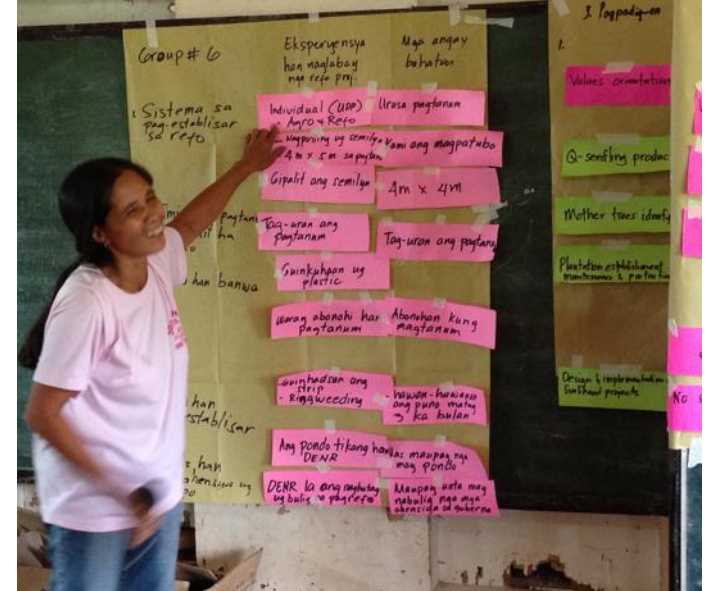 Group # 6
Eksperyensya
han naglabay
nga refo proj.
Mga angay
buhaton
1. Sistema sa
pag-establisar
sa refo
Individual (UDP)
- Agro + Refo
Urosa pagtanum
- Nagpusing ug semilya
4m x 5m
Kami ang magpatubo
Gipalit ang semilya
4m x 4m
pagtanum
Tag-uran ang
pagtanum
Tag-uran ang pagtanum
han banwa
Guinkuhaan ug
plastic
waray abonohi han
pagtanum
Abonohan kung
magtanum
han
establisar
- Guinhadsan ang
strip
- Ringweeding
hawan-hawanan
ang puno matag
3 ka bulan
Ang pondo tikang han
DENR
mas maupay nga
may pondo
han
DENR la ang naghatag
ug bulig sa pagrefo
Maupay unta may
nabulig nga mga
ahensida sa gobierno
1.
Values orientation
Q-seedling produc
Mother trees identif
Plantation establishment
maintenance & protection
Design & implementation
livelihood projects
No